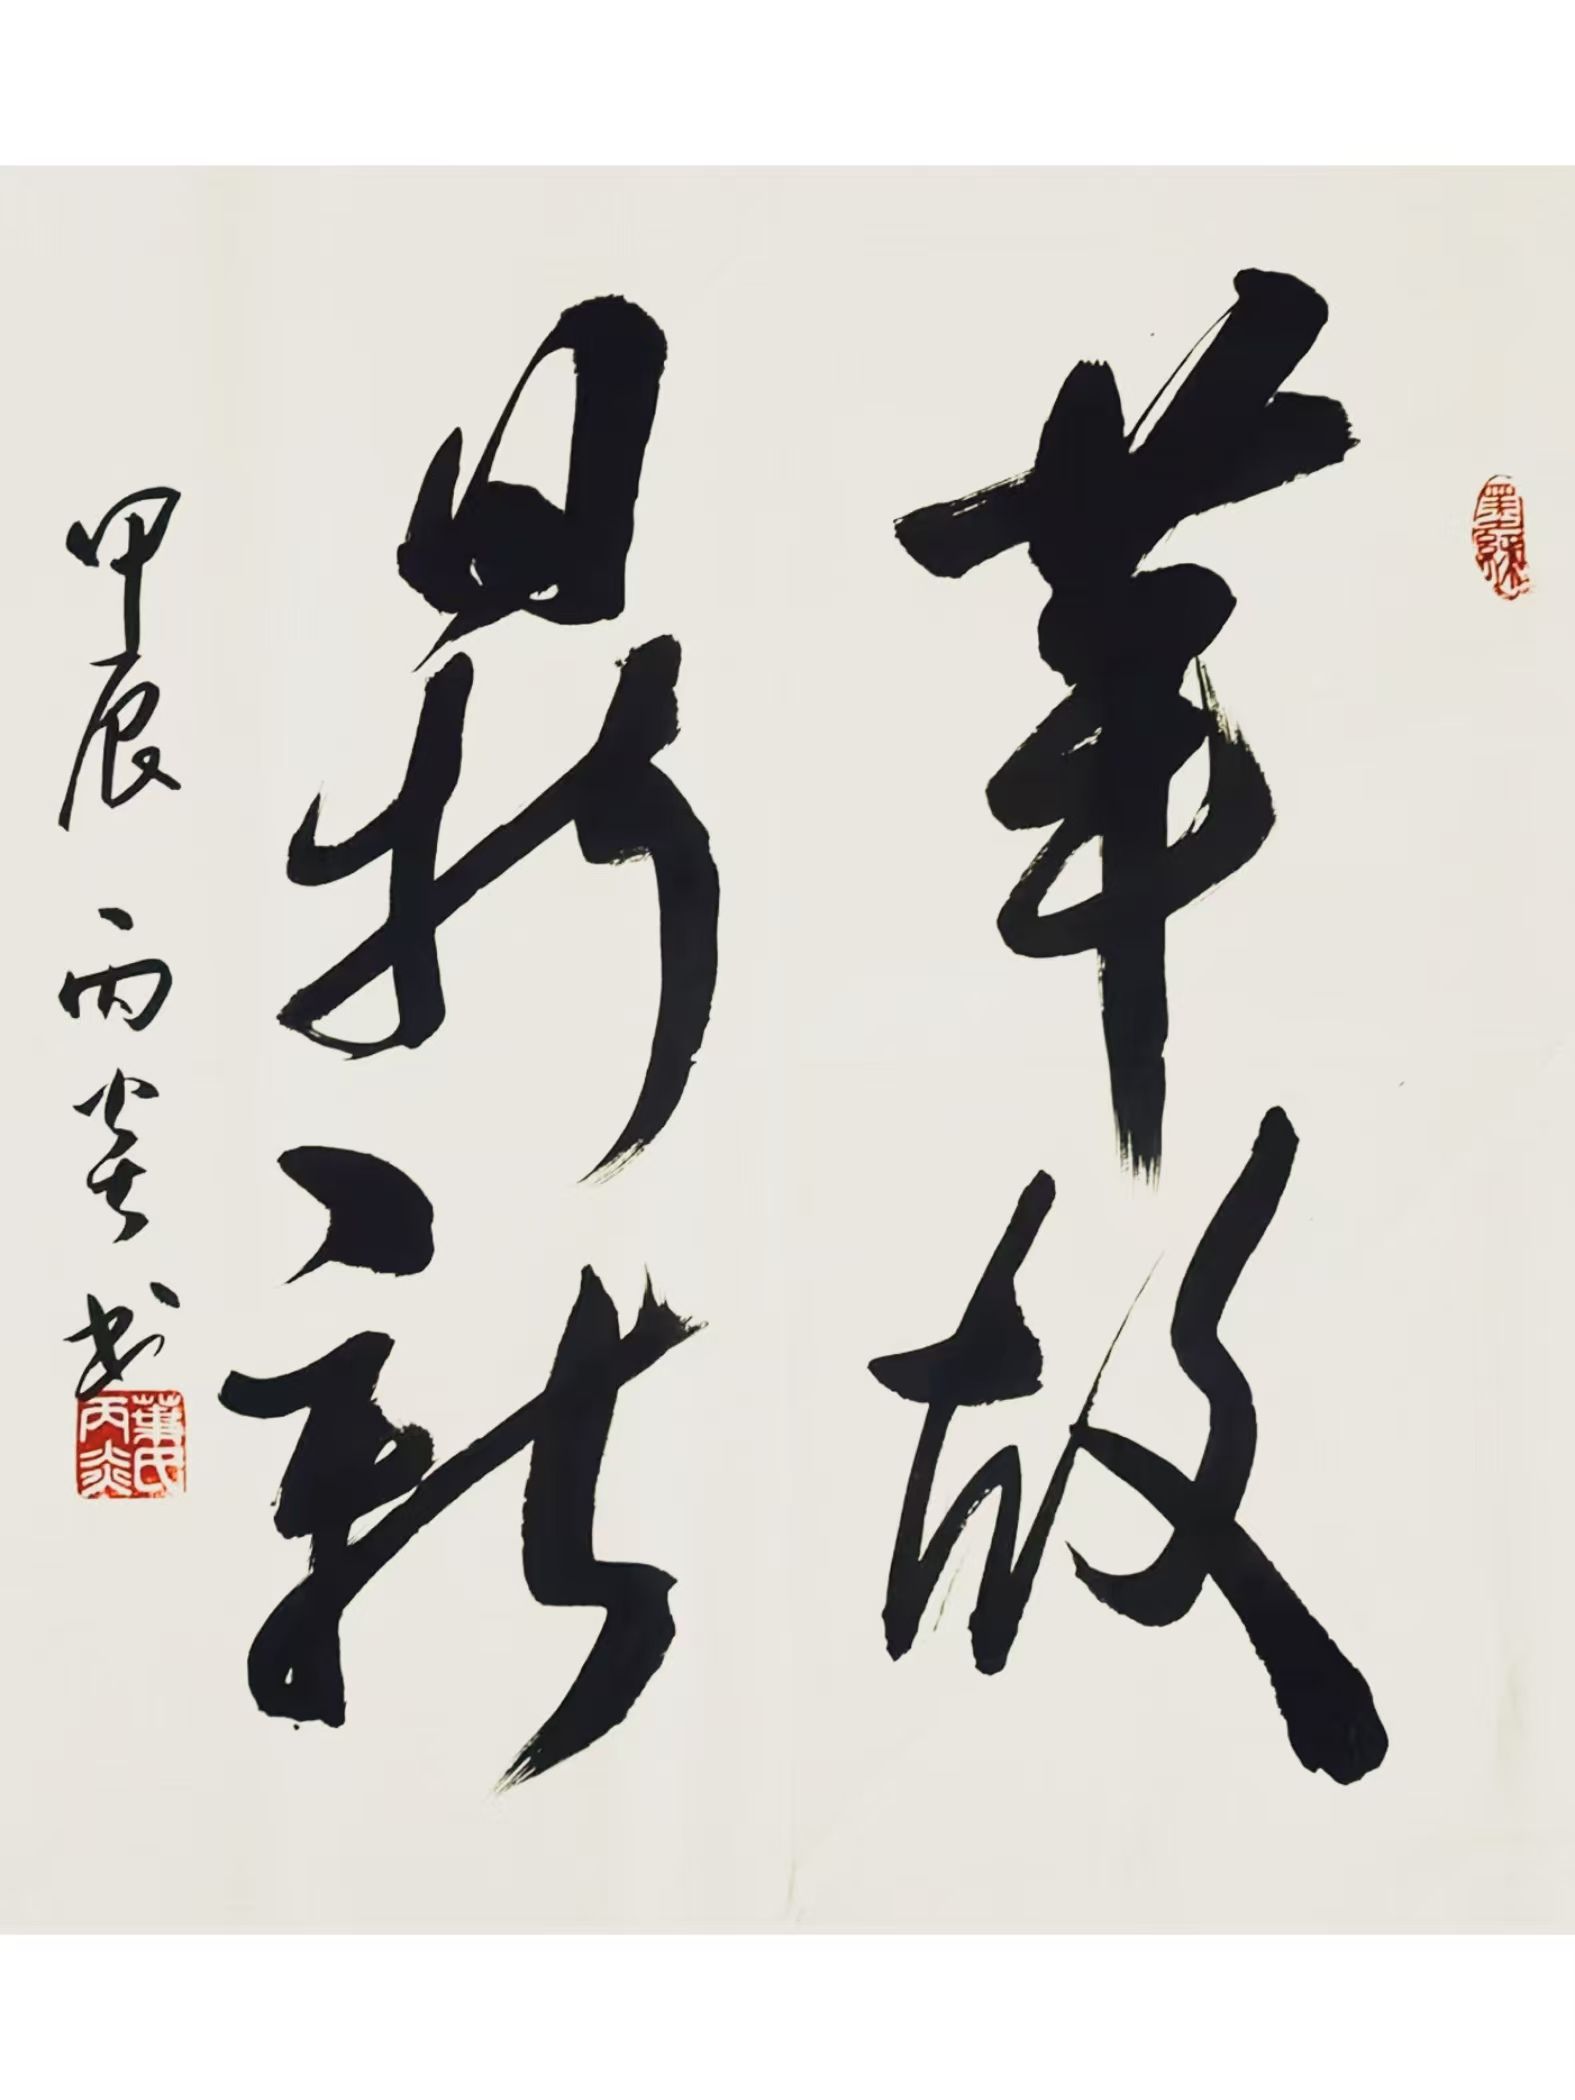 革故
鼎新
甲辰 丙炎书
葉氏丙炎